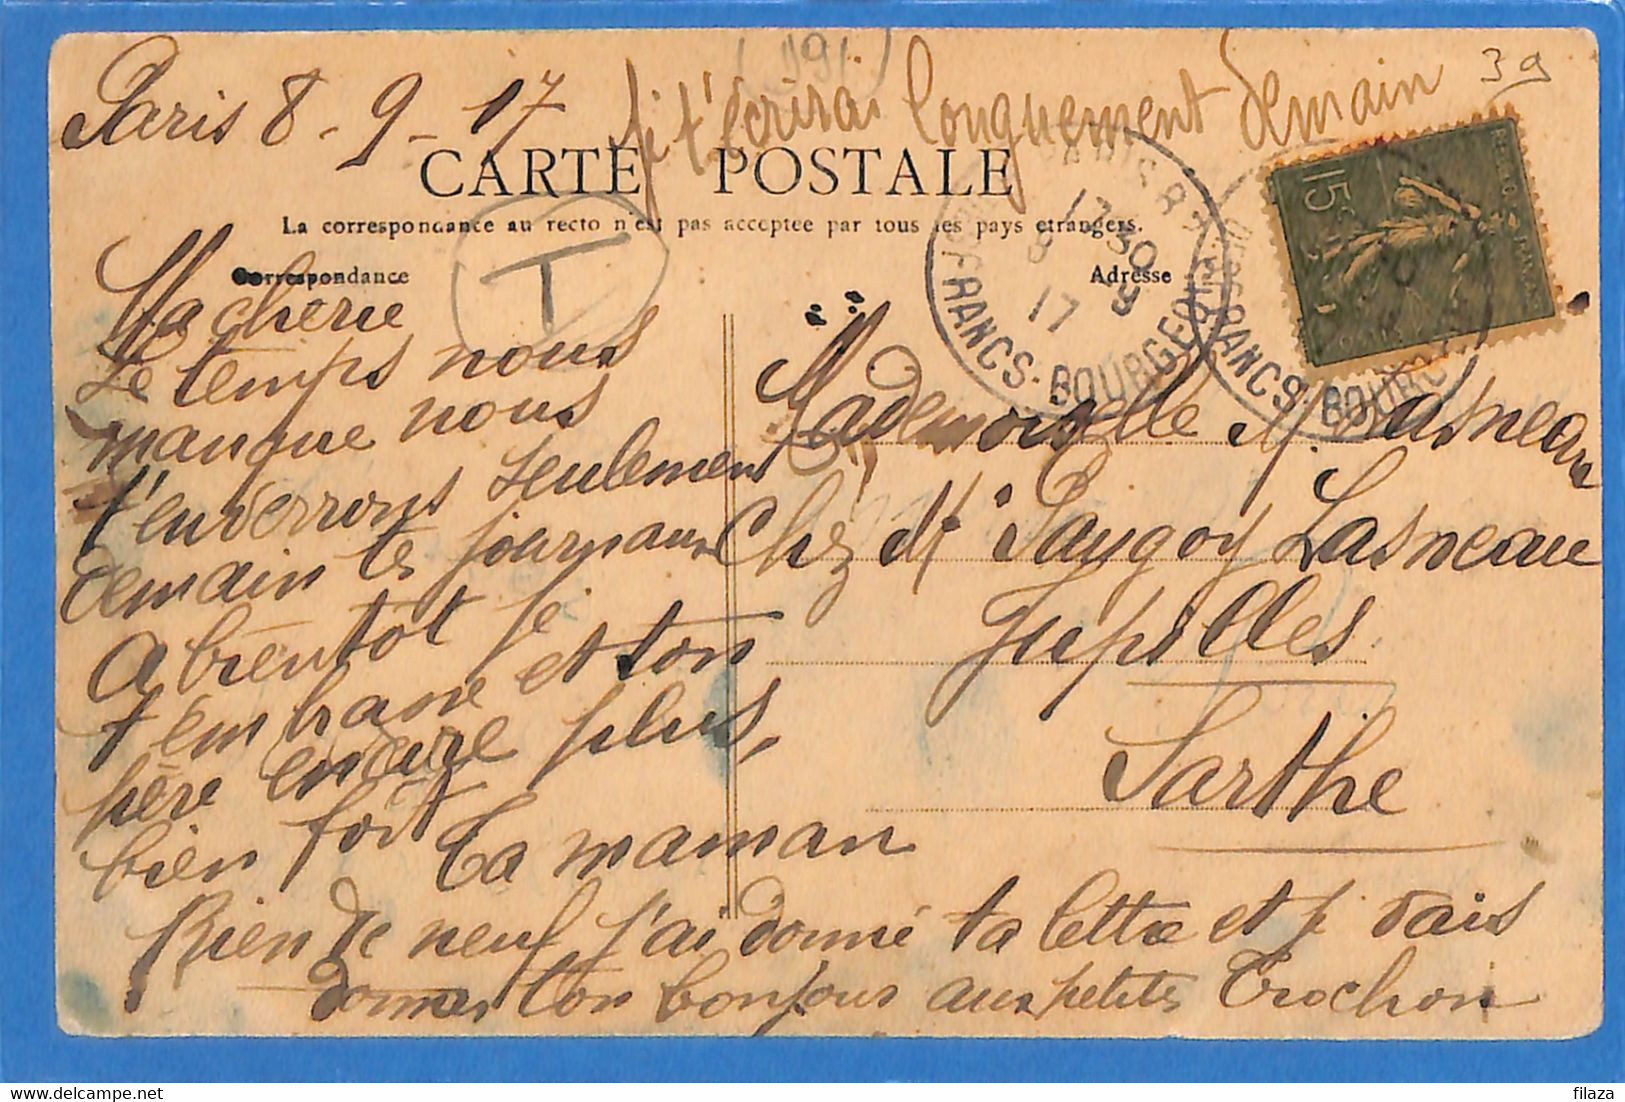 (191)
39
Je t'écrirai longuement demain
Paris 8-9-17
CARTE POSTALE
La correspondance au recto n'est pas acceptee par tous les pays etrangers.
Correspondance
Adresse
T
PARIS R.3
17 30
8 9
17
FRANCS-BOURGEOIS
FRANCS-BOURG
15c
Ma cherie
Le temps nous
manque nous
t'enverrons seulement
demain les journaux
A bientôt je
t'embrasse et ton
père encore plus
bien fort
Ta maman
Rien de neuf j'ai donné ta lettre et p vais
donner ton bonjour aux petits Crochon
Mademoiselle M Lasneau
Chez Mr Paygoy Lasneau
Jupilles
Sarthe
filaza